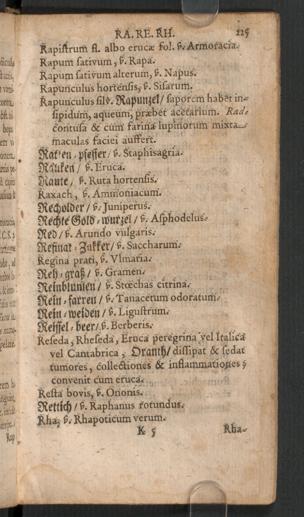 RA. RE. RH. 225
Rapistrum fl. albo erucæ fol. v. Armoracia.
Rapum sativum, v. Rapa.
Rapum sativum alterum, v. Napus.
Rapunculus hortensis, v. Sisarum.
Rapunculus silv. Rapunzel/ saporem habet in-
sipidum, aqueum, præbet acetarium. Rad.
contusa & cum farina lupinorum mixta
maculas faciei aufert.
Ratzen-pfeffer/ v. Staphisagria.
Rauken/ v. Eruca.
Raute/ v. Ruta hortensis.
Raxach, v. Ammoniacum.
Recholder/ v. Juniperus.
Rechte Gold-wurzel/ v. Asphodelus.
Red/ v. Arundo vulgaris.
Refinat-Zukker/ v. Saccharum.
Regina prati, v. Ulmaria.
Reh-graß/ v. Gramen.
Reinblumen/ v. Stœchas citrina.
Rein-farren/ v. Tanacetum odoratum.
Rein-weiden/ v. Ligustrum.
Reissel-beer/ v. Berberis.
Reseda, Rheseda, Eruca peregrina vel Italica
vel Cantabrica, Oranth/ dissipat & sedat
tumores, collectiones & inflammationes;
convenit cum eruca.
Resta bovis, v. Ononis.
Rettich/ v. Raphanus rotundus.
Rha, v. Rhaponticum verum.
K 5 Rha-